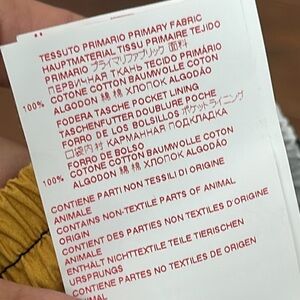 TESSUTO PRIMARIO PRIMARY FABRIC
HAUPTMATERIAL TISSU PRIMAIRE TEJIDO
PRIMARIO プライマリファブリック 面料
ПЕРВИЧНАЯ ТКАНЬ TECIDO PRIMÁRIO
100% COTONE COTTON BAUMWOLLE COTON
ALGODON 綿 棉 ХЛОПОК ALGODÃO
FODERA TASCHE POCKET LINING
TASCHENFUTTER DOUBLURE POCHE
FORRO DE LOS BOLSILLOS ポケットライニング
口袋内衬 КАРМАННАЯ ПОДКЛАДКА
FORRO DE BOLSO
100% COTONE COTTON BAUMWOLLE COTON
ALGODON 綿 棉 ХЛОПОК ALGODÃO
CONTIENE PARTI NON TESSILI DI ORIGINE
ANIMALE
CONTAINS NON-TEXTILE PARTS OF ANIMAL
ORIGIN
CONTIENT DES PARTIES NON TEXTILES D'ORIGINE
ANIMALE
ENTHÄLT NICHTTEXTILE TEILE TIERISCHEN
URSPRUNGS
CONTIENE PARTES NO TEXTILES DE ORIGEN
ANIMAL